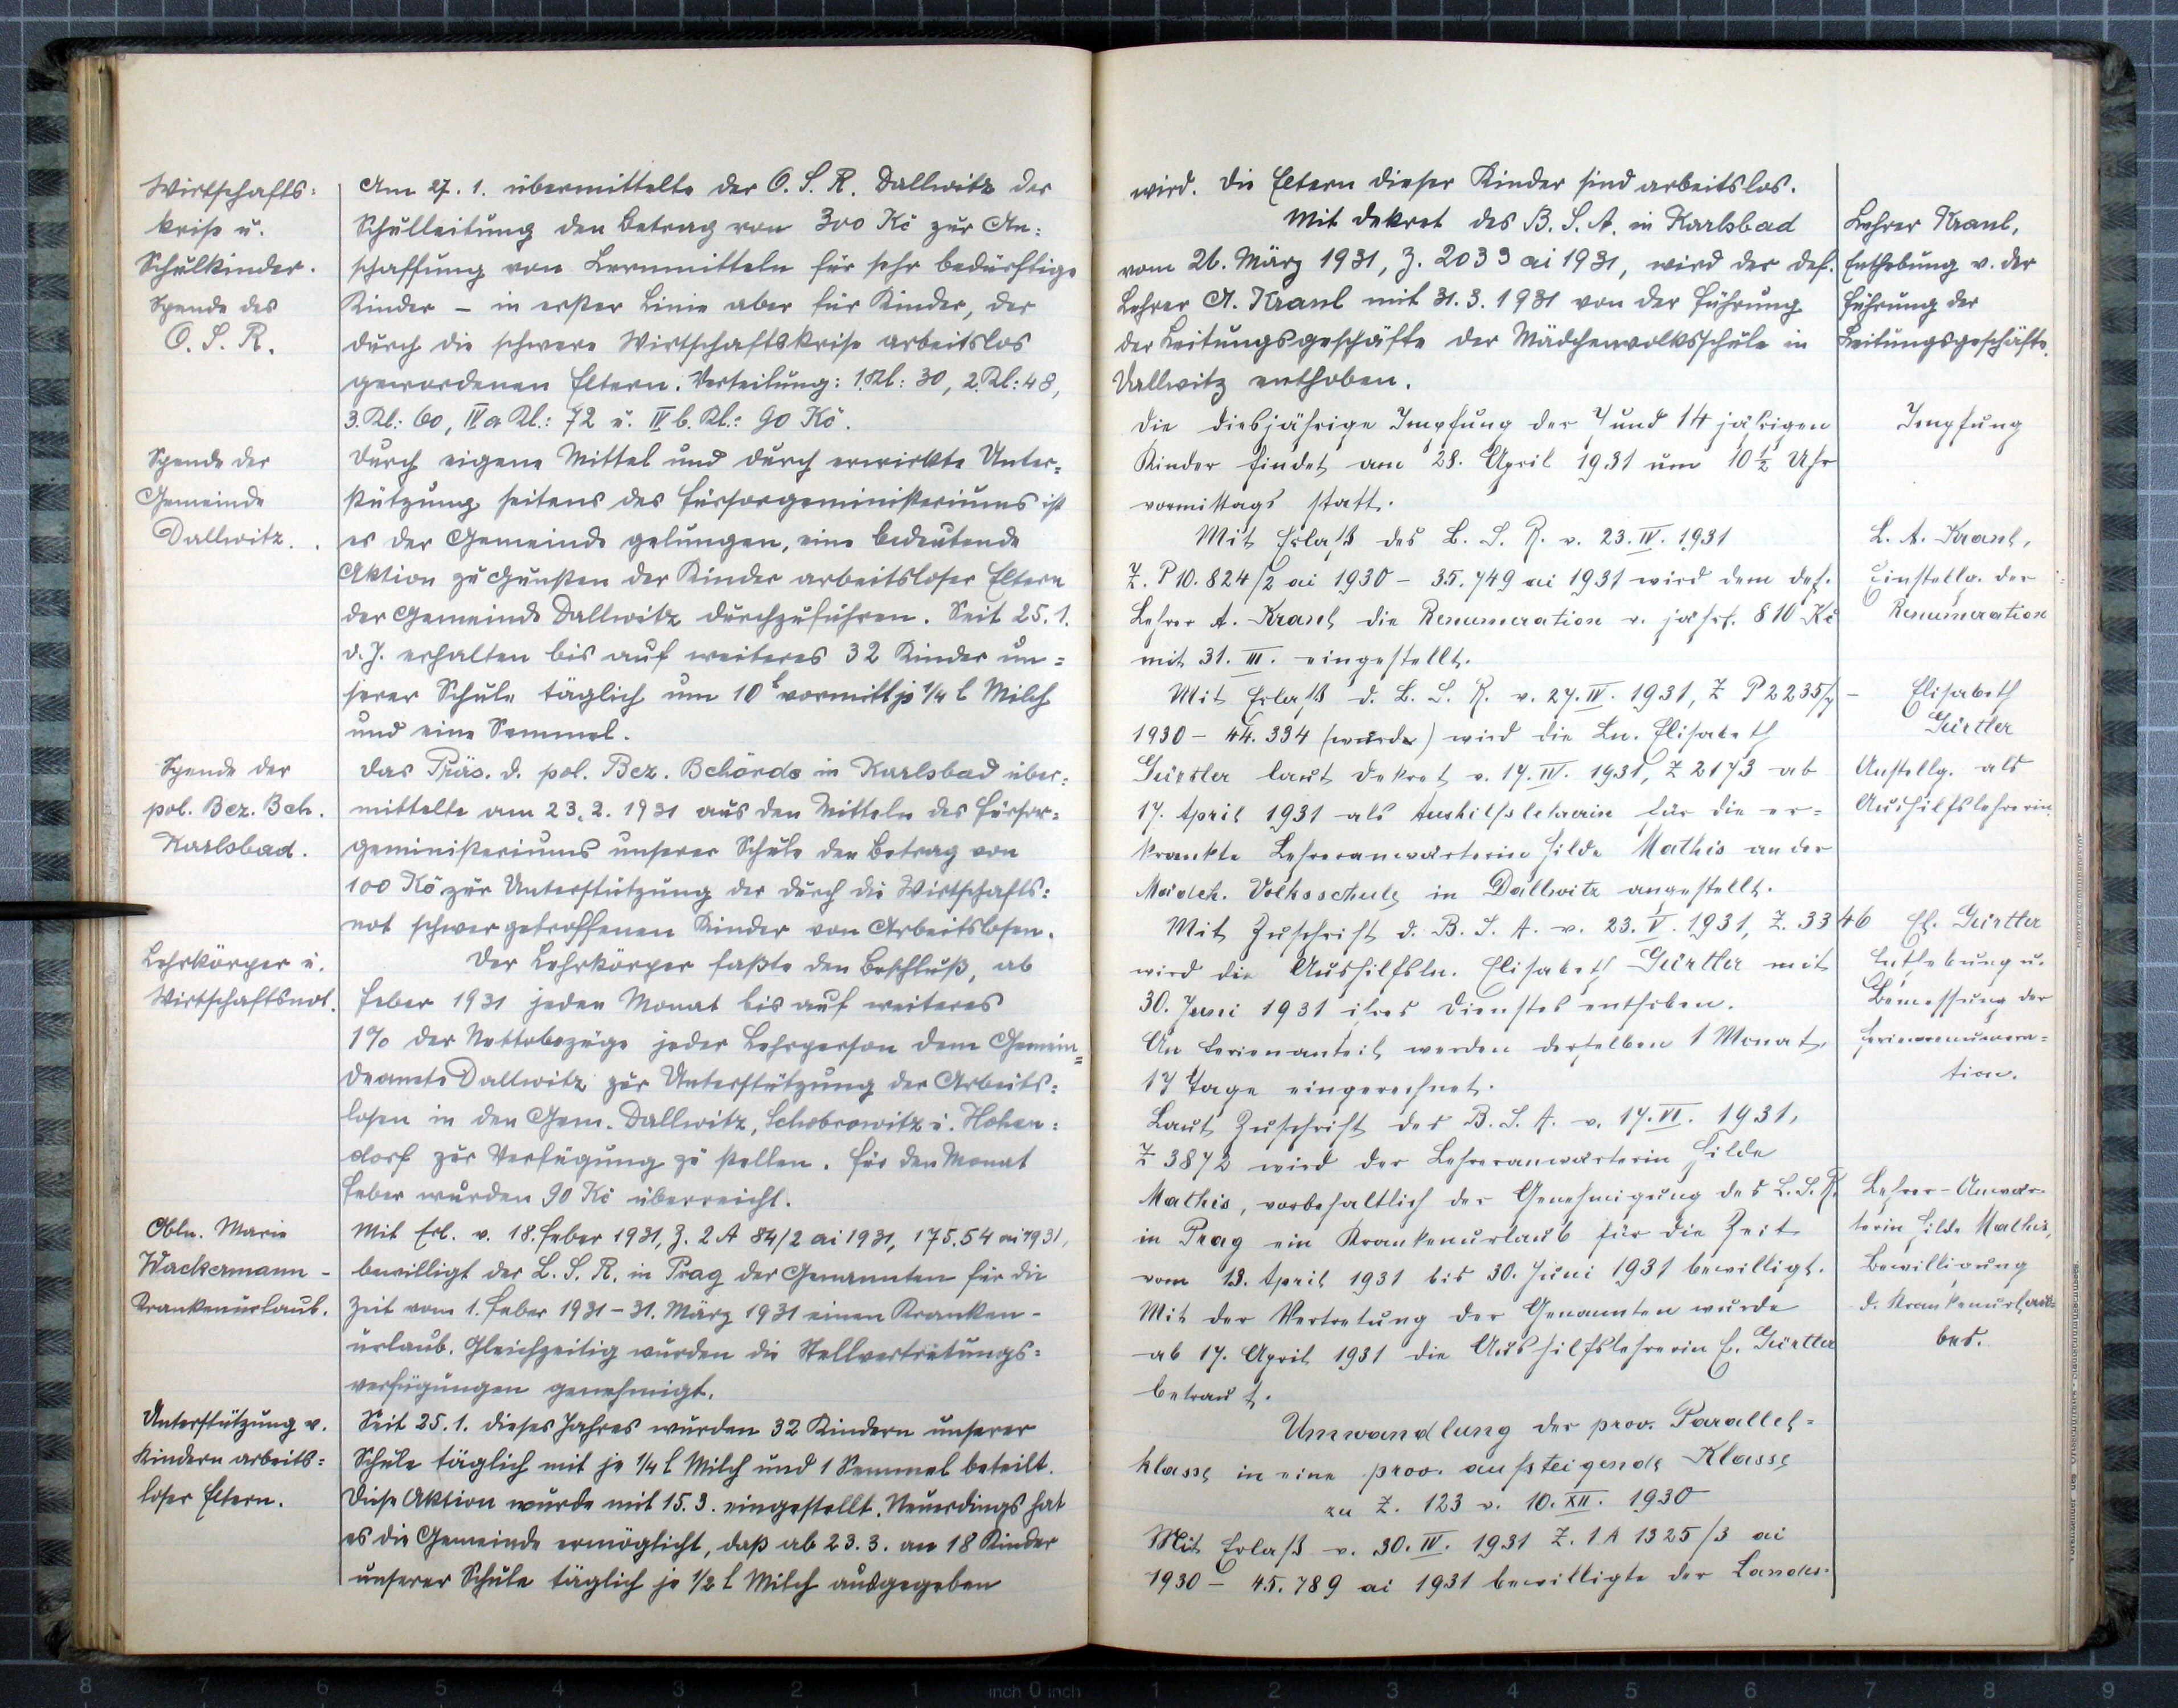 Wirtschafts:
krise u.
Schulkinder.
Spende des
O. S. R.
Am 27. 1. übermittelte der O. S. R. Dallwitz der
Schulleitung den Betrag von 300 Kč zur An:
schaffung von Lernmitteln für sehr bedürftige
Kinder – in erster Linie aber für Kinder, der
durch die schwere Wirtschaftskrise arbeitslos
gewordenen Eltern. Verteilung: 1. Kl: 30, 2. Kl: 48,
3. Kl: 60, IV a Kl.: 72 u. IV b. Kl.: 90 Kč.
Spende der
Gemeinde
Dallwitz.
Durch eigene Mittel und durch erwirkte Unter:
stützung seitens des Fürsorgeministeriums ist
es der Gemeinde gelungen, eine bedeutende
Aktion zu Gunsten der Kinder arbeitsloser Eltern
der Gemeinde Dallwitz durchzuführen. Seit 25. 1.
d. J. erhalten bis auf weiteres 32 Kinder un =
serer Schule täglich um 10h vormitt. je 1/4 l Milch
und eine Semmel.
Spende der
pol. Bez. Beh.
Karlsbad.
Das Präs. d. pol. Bez. Behörde in Karlsbad über:
mittelte am 23. 2. 1931 aus den Mitteln des Fürsor:
geministeriums unserer Schule den Betrag von
100 Kč zur Unterstützung der durch die Wirtschafts:
not schwer getroffenen Kinder von Arbeitslosen.
Lehrkörper u.
Wirtschaftsnot.
Der Lehrkörper faßte den Beschluß, ab
Feber 1931 jeden Monat bis auf weiteres
1% der Nettobezüge jeder Lehrperson dem Gemein=
deamte Dallwitz zur Unterstützung der Arbeits:
losen in den Gem. Dallwitz, Schobrowitz u. Hohen:
dorf zur Verfügung zu stellen. Für den Monat
Feber wurden 90 Kč überreicht.
Obln. Marie
Wackermann –
Krankenurlaub.
Mit Erl. v. 18. Feber 1931, Z. 2 A 84/2 ai 1931, 175.54 ai 1931,
bewilligt der L. S. R. in Prag der Genannten für die
Zeit vom 1. Feber 1931 – 31. März 1931 einen Kranken-
urlaub. Gleichzeitig wurden die Stellvertretungs=
verfügungen genehmigt.
Unterstützung v.
Kindern arbeits=
loser Eltern.
Seit 25. 1. dieses Jahres wurden 32 Kindern unserer
Schule täglich mit je 1/4 l Milch und 1 Semmel beteilt.
Diese Aktion wurde mit 15. 3. eingestellt. Neuerdings hat
es die Gemeinde ermöglicht, daß ab 23. 3. an 18 Kinder
unserer Schule täglich je 1/2 l Milch ausgegeben
wird. Die Eltern dieser Kinder sind arbeitslos.
Mit Dekret des B. S. A. in Karlsbad
vom 26. März 1931, Z. 2033 ai 1931, wird der def.
Lehrer A. Kraul mit 31. 3. 1931 von der Führung
der Leitungsgeschäfte der Mädchenvolksschule in
Dallwitz enthoben.
Lehrer Kraul,
Enthebung v. der
Führung der
Leitungsgeschäfte.
Die diesjährige Impfung der 7 und 14 jährigen
Kinder findet am 28. April 1931 um 10 1/2 Uhr
vormittags statt.
Impfung
Mit Erlaß des L. S. R. v. 23. IV. 1931
Z. P 10. 824/2 ai 1930 – 35.749 ai 1931 wird dem def.
Lehrer A. Kraul die Renumeration v. jährl. 810 Kč
mit 31. III. eingestellt.
L. A. Kraul,
Einstellg. der
Renumeration
Mit Erlaß d. L. S. R. v. 27. IV. 1931, Z P 2235/7 –
1930 – 44. 334 (wurde) wird die Ln. Elisabeth
Gürtler laut Dekret v. 17. IV. 1931, Z 2173 ab
17. April 1931 als Aushilfslehrerin für die er=
krankte Lehreranwärterin Hilde Mathis an der
Mädch. Volksschule in Dallwitz angestellt.
Elisabeth
Gürtler
Anstellg. als
Aushilfslehrerin.
Mit Zuschrift d. B. S. A. v. 23. V. 1931, Z. 3346
wird die Aushilfsln. Elisabeth Gürtler mit
30. Juni 1931 ihres Dienstes enthoben.
An Ferienanteil werden derselben 1 Monat,
17 Tage eingerechnet.
El. Gürtler
Enthebung u.
Bemessung der
Ferienrenumera=
tion.
Laut Zuschrift des B. S. A. v. 17. VI. 1931,
Z 3872 wird der Lehreranwärterin Hilde
Mathis, vorbehaltlich der Genehmigung des L. S. R.
in Prag ein Krankenurlaub für die Zeit
vom 13. April 1931 bis 30. Juni 1931 bewilligt.
Mit der Vertretung der Genannten wurde
ab 17. April 1931 die Aushilfslehrerin E. Gürtler
betraut.
Lehrer-Anwär-
terin Hilde Mathis,
Bewilligung
d. Krankenurlau=
bes.
Umwandlung der prov. Parallel=
klasse in eine prov. aufsteigende Klasse
zu Z. 123 v. 10. XII. 1930
Mit Erlaß v. 30. IV. 1931 Z. 1 A 1325/3 ai
1930 – 45.789 ai 1931 bewilligte der Landes-
8 7 6 5 4 3 2 1 inch 0 inch 1 2 3 4 5 6 7 8 9